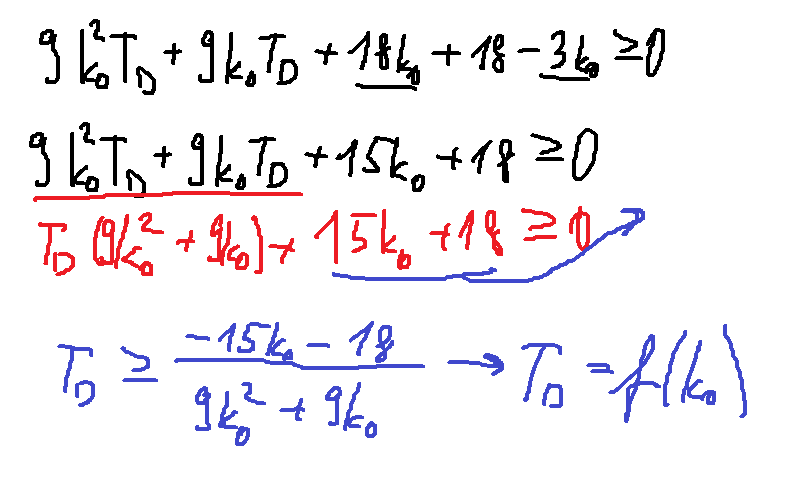 9k₀²T_D + 9k₀T_D + 18k₀ + 18 - 3k₀ ≥ 0
9k₀²T_D + 9k₀T_D + 15k₀ + 18 ≥ 0
T_D(9k₀² + 9k₀) + 15k₀ + 18 ≥ 0
T_D ≥ (-15k₀ - 18)/(9k₀² + 9k₀) → T_D = f(k₀)